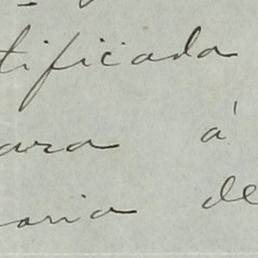 tificada
ara á
oria de